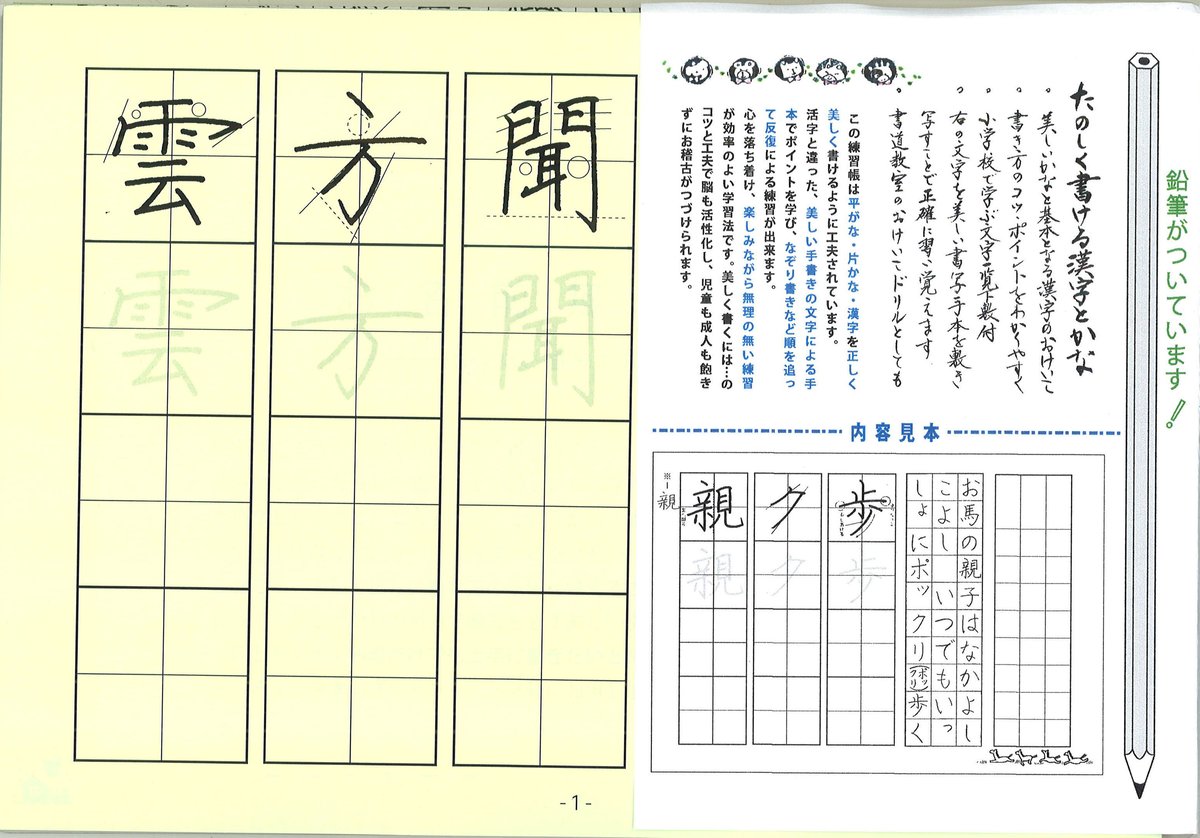 鉛筆がついています！
たのしく書ける漢字とかな
・美しいかなと基本となる漢字のおけいこ
・書き方のコツ・ポイントをわかりやすく
・小学校で学ぶ文字一覧下敷付
・右の文字を美しい書写手本を敷き
写すことで正確に習い覚えます
・書道教室のおけいこドリルとしても
この練習帳は平がな・片かな・漢字を正しく
美しく書けるように工夫されています。
活字と違った、美しい手書きの文字による手
本でポイントを学び、なぞり書きなど順を追っ
て反復による練習が出来ます。
心を落ち着け、楽しみながら無理の無い練習
が効率のよい学習法です。美しく書くには…の
コツと工夫で脳も活性化し、児童も成人も飽き
ずにお稽古がつづけられます。
内容見本
お馬の親子はなかよし
こよし いつでもいっ
しょにポックリ(ポックリ)歩く
歩
歩
ク
ク
親
親
※親
聞
聞
方
方
雲
雲
-1-